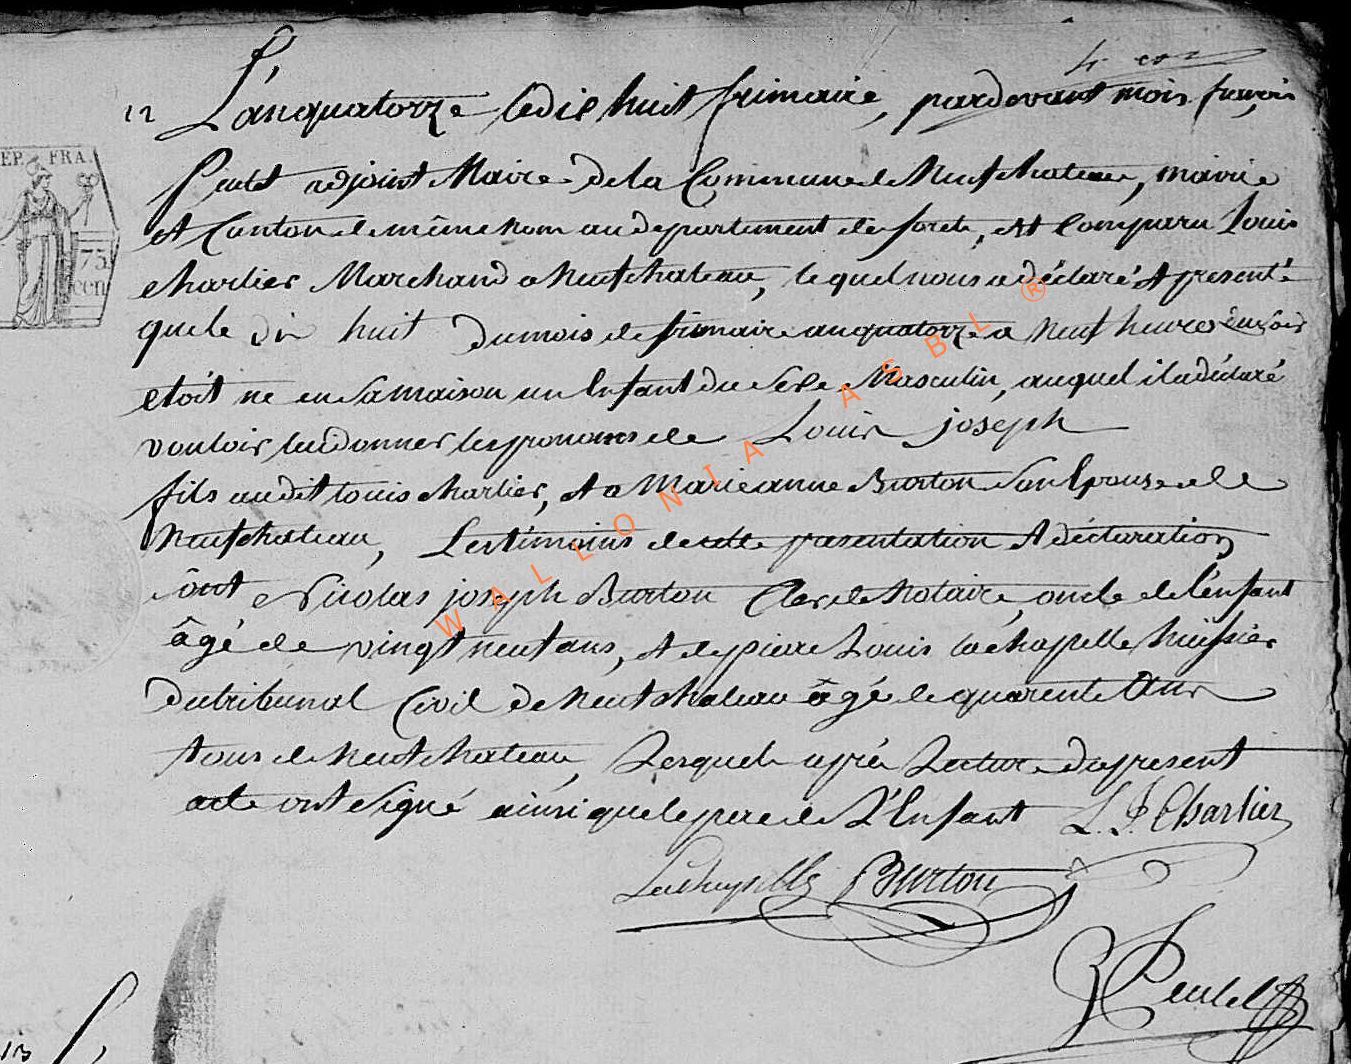 12 L'an quatorze le dix huit frimaire, pardevant mois françois
REP. FRA.
adjoint Maire de la Commune de Neufchateau, mairie
et Canton de même nom au departement de forets, est Comparu Louis
75
cen
charlier Marchand a Neufchateau, lequel nous a déclaré et presenté
que le dix huit du mois de frimaire an quatorze a neuf heures du soir
etoit né en sa maison un Enfant du Sexe Masculin, auquel il a déclaré
vouloir lui donner les prenoms de Louis joseph
fils audit Louis charlier, et a Marie anne Burton Son Epouse de
Neufchateau, Les temoins de cette presentation et déclaration
ont Nicolas joseph Burton Clerc de Notaire, oncle de l'enfant
âgé de vingt neuf ans, et de pierre Louis lachapelle huissier
du tribunal Civil de Neufchateau âgé de quarente Ans
tous de Neufchateau, Lesquels après Lecture du present
acte ont Signé ainsi que le pere de L'Enfant L. J. Charlier
Lachapelle Burton
WALLONIA ASBL ®
13